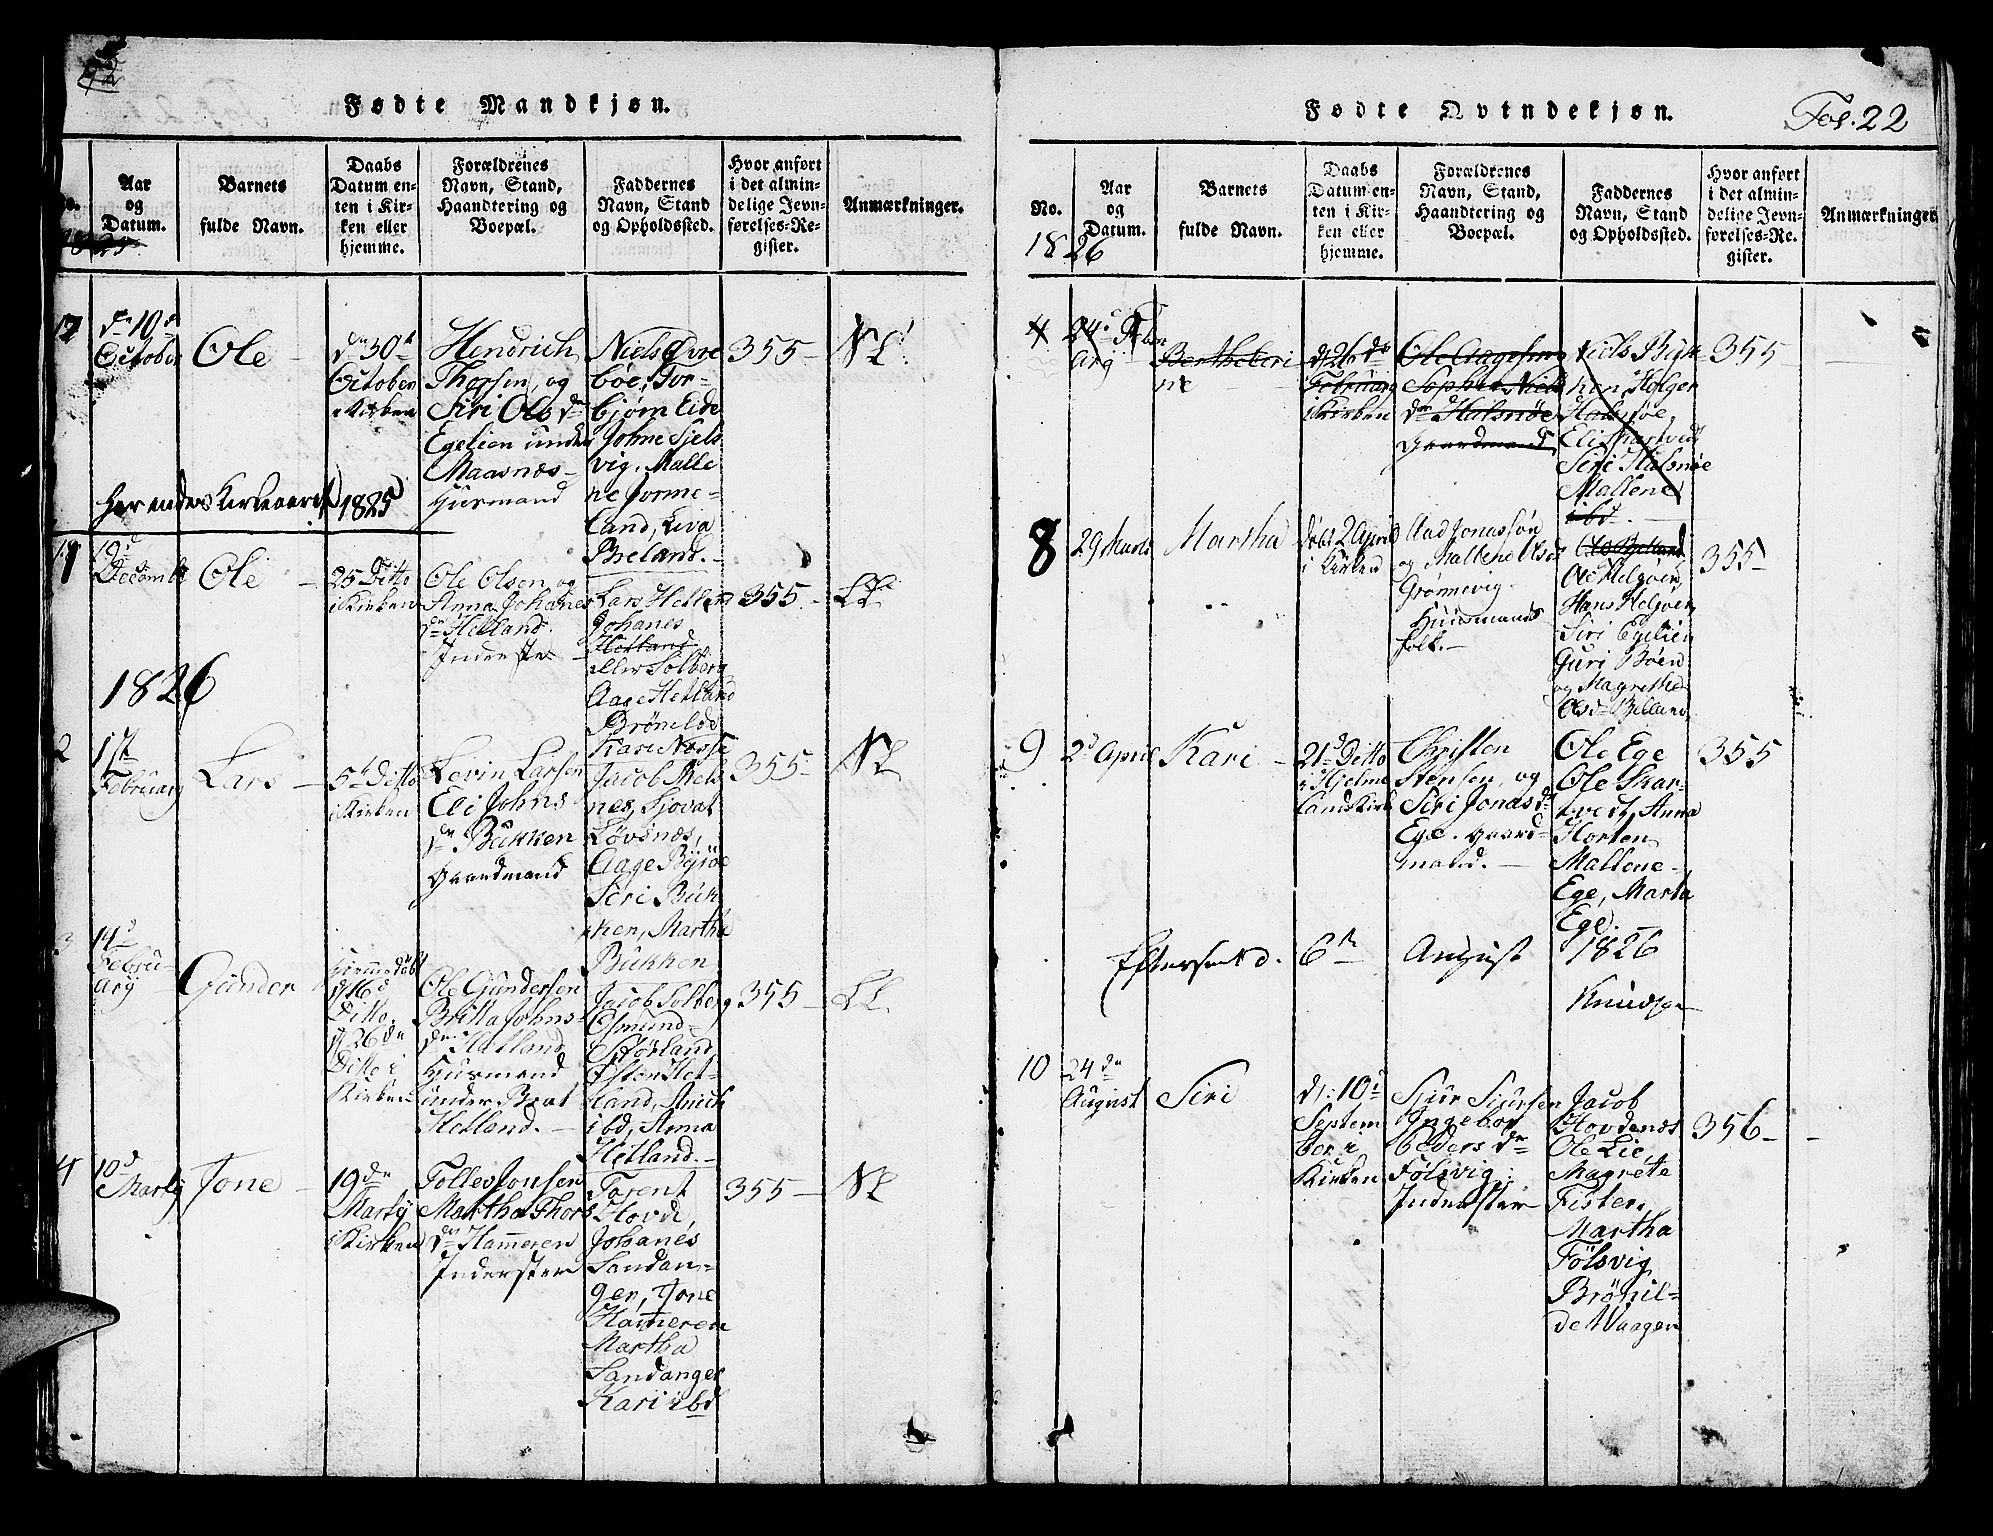 Fødte Mandkjøn.
No.
Aar
og
Datum.
Barnets
fulde Navn.
Daabs
Datum en-
ten i Kir-
ken eller
hjemme.
Forældrenes
Navn, Stand,
Haandtering og
Boepæl.
Faddernes
Navn, Stand
og Opholdssted.
Hvor anført
i det almin-
delige Jevn-
førelses-Re-
gister.
Anmærkninger.
d 10d
October
Ole
dn 30t
October
i Kirken
Hendrich
Thorsen, og
Siri Ols dn
Egelien under
Maasnæs
Huusmand
Niels Øvre
bøe, Tor-
bjørn Eide
Johne Sjels
vig. Malle
ne Forme-
land, Liva
Breland.
355
NL
Her endes Kirkeaaret 1825
1
19d
Decembr
Ole
25 Ditto
i Kirken
Ole Olsen, og
Anna Johanes
dn Hetland.
Inderste
Lars Hetland
Johanes
Hetland
eller Solberg
Aage Hetland
Brönelde
Kari Næsse
355
LL
1826
2
1st
Februarj
Lars
5t Ditto
i Kirken
Levin Larsen
Eli Johns
dn Bukken
Gaardmand
Jacob Mels
nes, Sjovat
Løvsnæs,
Aage Byröe
Siri Buk
ken, Martha
Bukken
355
NL
3
14d
Febru-
arj
Gunder
hjemmedöbt
d 16d
Ditto.
d 26 dn
Ditto i
Kirken
Ole Gundersen
Britta Johns-
dn Hetland
Huusmand
under Brat
Hetland.
Jacob Solberg
Osmund
Størland
Østen Het-
land,
ibd, Anna
Hetland.
355
LL
4
10d
Martij
Jone
19dn
Martij
i Kirken
Tollev Jonsen
Martha Thors
dn Hammeren
Inderster
Torent
Hovde,
Johanes
Sandan-
ger, Jone
Hammeren
Martha
Sandanger
Kari ibd
355
NL
Fødte Qvindekjøn.
Fol. 22
No.
Aar
og
Datum.
Barnets
fulde Navn.
Daabs
Datum en-
ten i Kir-
ken eller
hjemme.
Forældrenes
Navn, Stand,
Haandtering og
Boepæl.
Faddernes
Navn, Stand
og Opholdssted.
Hvor anført
i det almin-
delige Jevn-
førelses-Re
gister.
Anmærkninger
1826
24d Febru
arj
Bertheleri
ne
d 26 dn
Februarj
i Kirken
Ole Aagesen
Sophia Niels
dn Halsnøe
Gaardmand
Niels Byk
ken, Holger
Halsnøe,
Eli Skartvedt
Siri Halsnøe
Mallene
ibd
355
8
29 Marts
Martha
Døbt 2 April
i Kirken
Aad Jonassøn
og Mallene Olsd
Grønnevig
Huusmands
folk.
Ole Bjelland
Ole Helgøen
Hans Helgøen
Siri Egelien
Guri Bøen
og Magrethe
Olsd Bjelland
355
9
2d April
Kari
21d Ditto
i Hjelme
lands Kirke
Christen
Stensen, og
Siri Jonas d
Ege. Gaard
mand.
Ole Ege
Ole Skar-
tvedt, Anna
Horten
Mallene
Ege, Marta
Ege.
355
Efterseet d. 6te August 1826
Knudsen
10
24dn
August
Siri
d: 10d
Septem
ber i
Kirken
Sjur Sjursen
Ingebor
Peders dn
Fölsvig
Inderster
Jacob
Hovdenæs
Ole Lie
Magrete
Fister,
Martha
Fölsvig
Brönil-
de Waagen
356